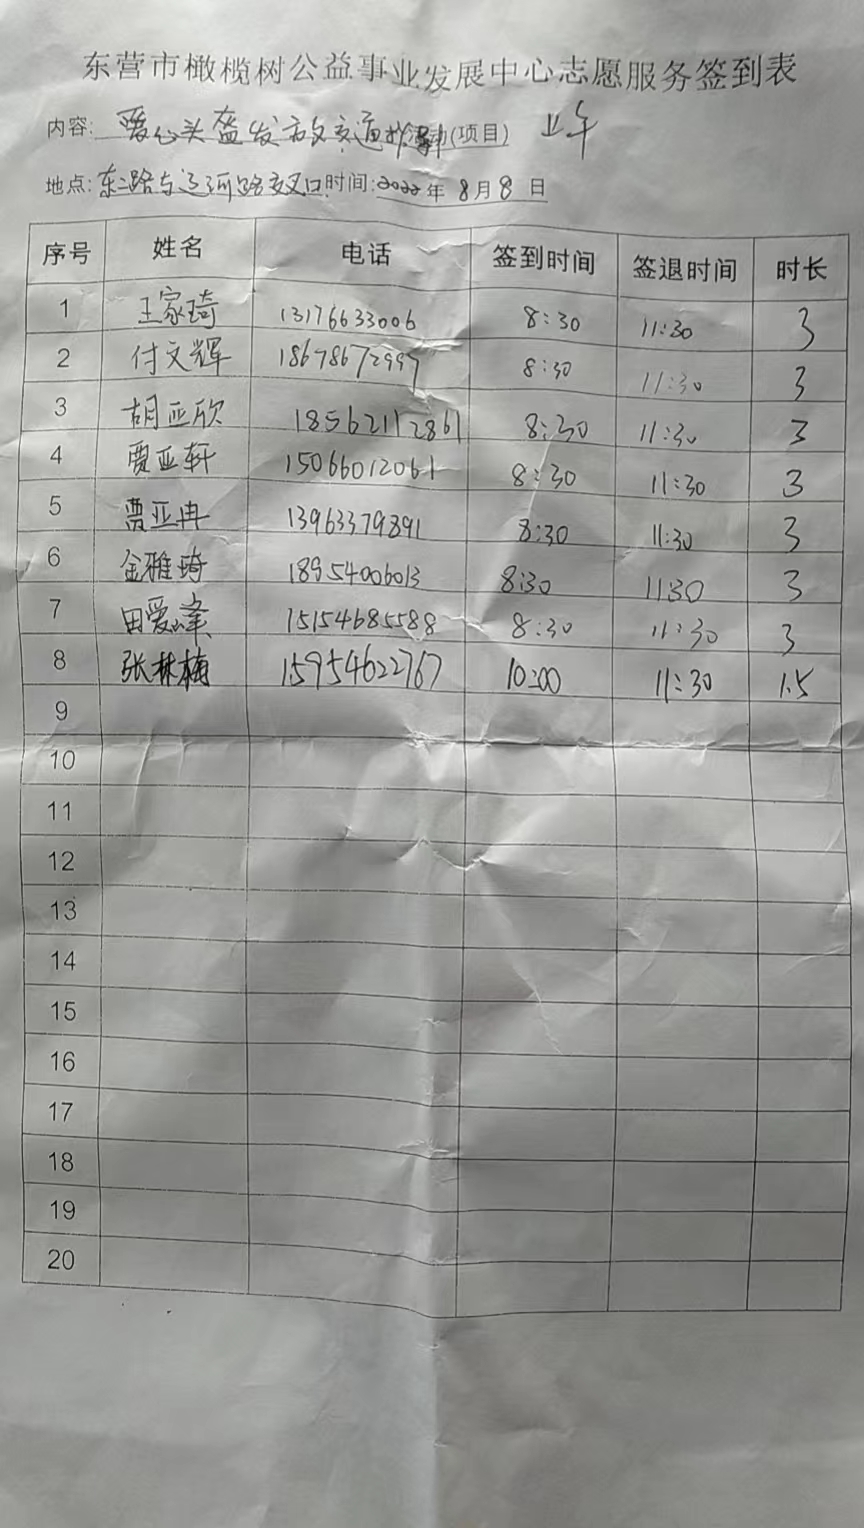 东营市橄榄树公益事业发展中心志愿服务签到表
内容: 爱心头盔发放交通 活动(项目) 上午
地点: 东二路与辽河路交叉口 时间: 2022年 8月 8日
序号 姓名 电话 签到时间 签退时间 时长
1 王家琦 13176633006 8:30 11:30 3
2 付文辉 18678672997 8:30 11:30 3
3 胡亚欣 18562112861 8:30 11:30 3
4 贾亚轩 15066012061 8:30 11:30 3
5 贾亚冉 13963379891 8:30 11:30 3
6 金雅琦 18954006013 8:30 11:30 3
7 田爱峰 15154685588 8:30 11:30 3
8 张林梅 15954622767 10:00 11:30 1.5
9
10
11
12
13
14
15
16
17
18
19
20